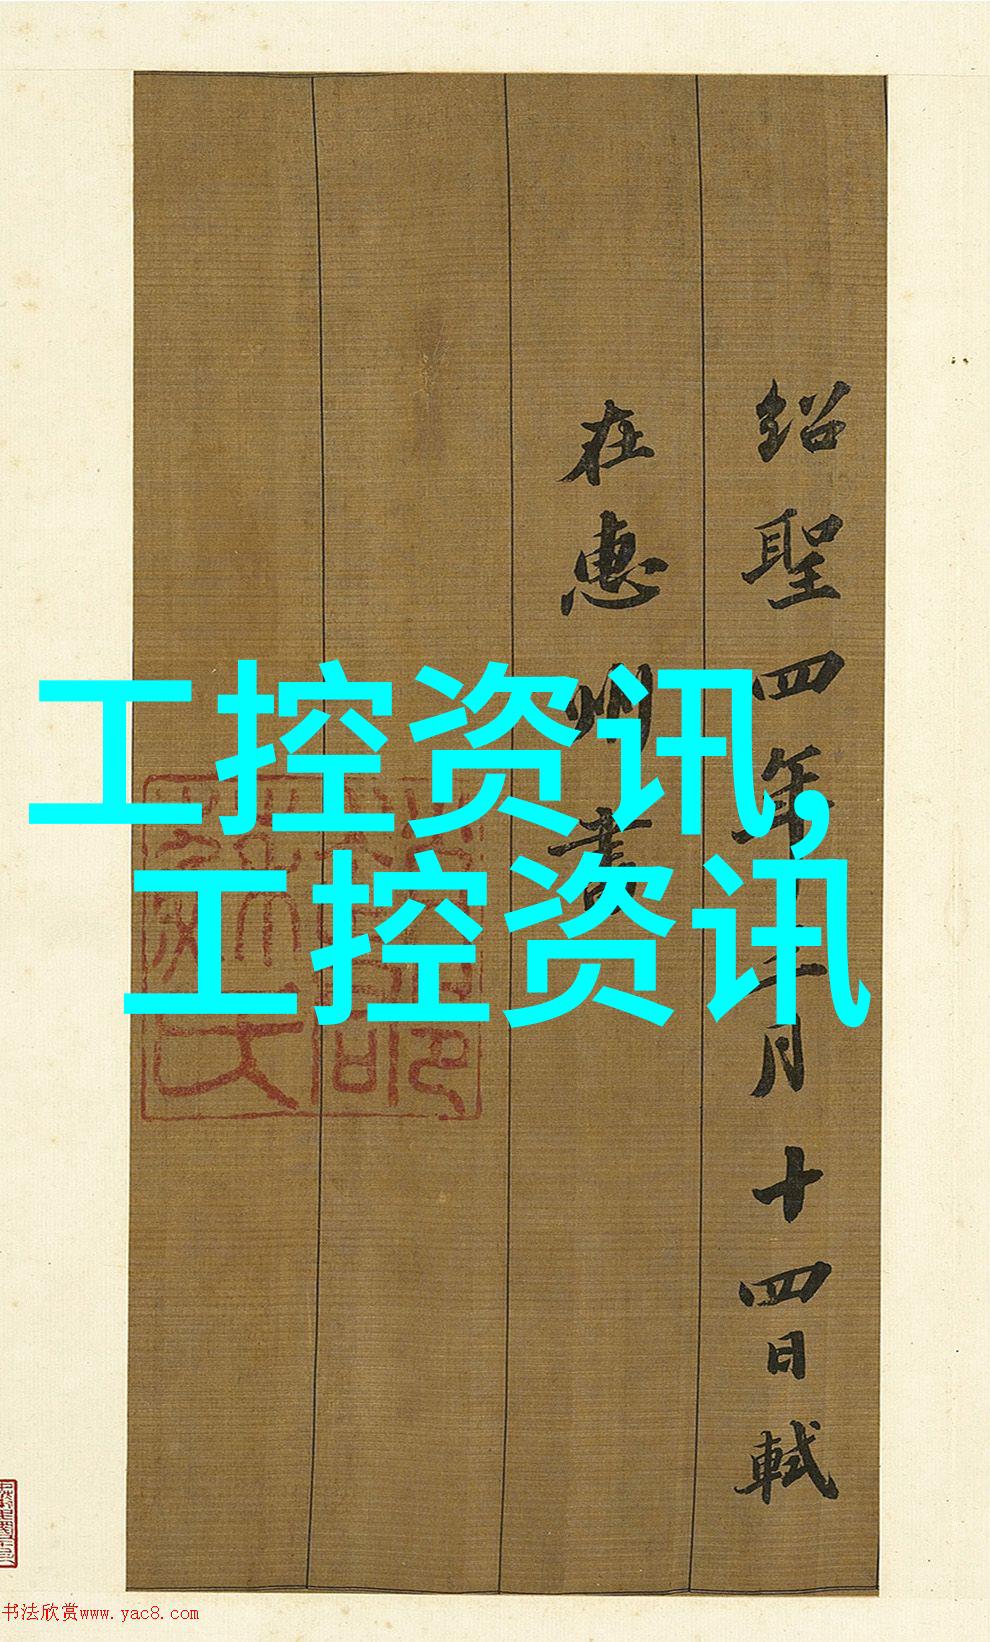 工控资讯,
工控资讯
绍聖四年十二月十四日軾
在惠州書
书法欣赏www.yac8.com